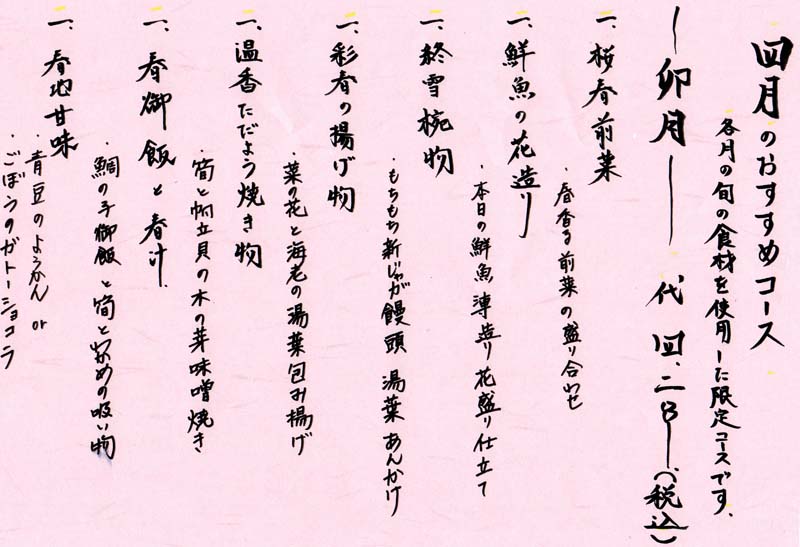 四月のおすすめコース
各月の旬の食材を使用した限定コースです。
―卯月― 代 四、二〇〇―(税込)
一、桜春前菜
・春香る前菜の盛り合わせ
一、鮮魚の花造り
・本日の鮮魚薄造り花盛り仕立て
一、終雪椀物
・もちもち新じゃが饅頭 湯葉あんかけ
一、彩春の揚げ物
・菜の花と海老の湯葉包み揚げ
一、温香ただよう焼き物
・筍と帆立貝の木の芽味噌焼き
一、春御飯と春汁
・鯛の子御飯と筍とわかめの吸い物
一、春地甘味
・青豆のようかん or
・ごぼうのガトーショコラ